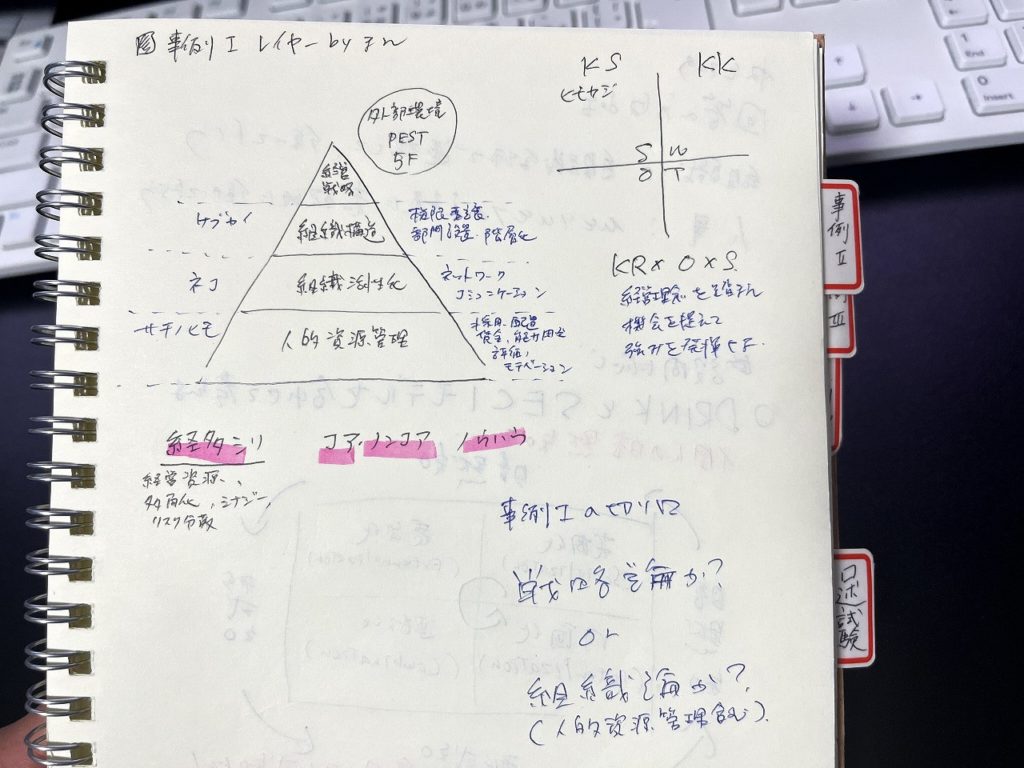 図 事例Ⅰ レイヤー by まん
外部環境
PEST
5F
経営
戦略
組織構造
組織活性化
人的資源管理
サブカイ
ネコ
サチノヒモ
権限委譲
部門設置 階層化
ネットワーク
コミュニケーション
採用 配置
賃金、能力開発
評価、
モチベーション
KS
KK
ヒモカジ
S W
O T
KR × O × S
経営理念を踏まえ
機会を捉えて
強みを発揮する
経タシリ
コア・ノンコア ノウハウ
経営資源、
多角化、シナジー、
リスク分散
事例Ⅰの切り口
戦略論か?
or
組織論か?
(人的資源管理含む)
事例Ⅱ
Ⅲ
口述試験
Insert